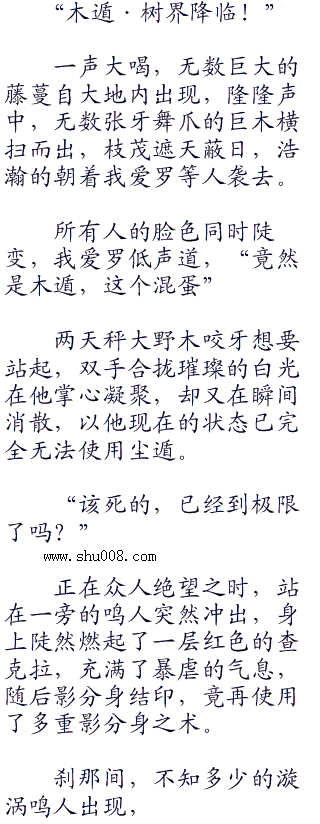 “木遁·树界降临！”
一声大喝，无数巨大的
藤蔓自大地内出现，隆隆声
中，无数张牙舞爪的巨木横
扫而出，枝茂遮天蔽日，浩
瀚的朝着我爱罗等人袭去。
所有人的脸色同时陡
变，我爱罗低声道，“竟然
是木遁，这个混蛋”
两天秤大野木咬牙想要
站起，双手合拢璀璨的白光
在他掌心凝聚，却又在瞬间
消散，以他现在的状态已完
全无法使用尘遁。
“该死的，已经到极限
了吗？”
www.shu008.com
正在众人绝望之时，站
在一旁的鸣人突然冲出，身
上陡然燃起了一层红色的查
克拉，充满了暴虐的气息，
随后影分身结印，竟再使用
了多重影分身之术。
刹那间，不知多少的漩
涡鸣人出现，